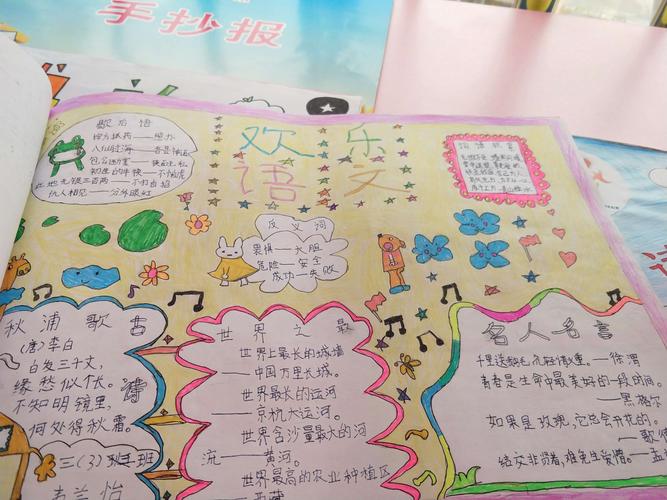 手抄报
欢乐
语文
歌后语
照方抓药——照办
八仙过海——各显神通
包公断案——铁面无私
初生的牛犊——不怕虎
此地无银三百两——不打自招
仇人相见——分外眼红
反义词
畏惧——大胆
危险——安全
成功——失败
秋浦歌
古
诗
(唐)李白
白发三千丈,
缘愁似个长。
不知明镜里,
何处得秋霜。
三(3)班
韦兰怡
世界之最
世界上最长的城墙
——中国万里长城。
世界最长的运河
——京杭大运河。
世界含沙量最大的河
流——黄河。
世界最高的农业种植区
——西藏
名人名言
千里送鹅毛,礼轻情意重。——徐渭
青春是生命中最美好的一段时间。
——黑格尔
如果是玫瑰,它总会开花的。
——歌德
结交非贤者,难免生爱憎。——孟